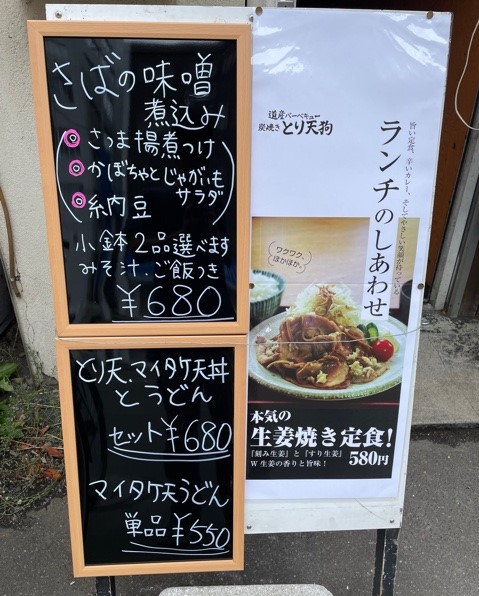 さばの味噌
煮込み
さつま揚煮つけ
かぼちゃとじゃがいも
サラダ
納豆
小鉢2品選べます
みそ汁、ご飯つき
¥680
とり天、マイタケ天丼
とうどん
セット¥680
マイタケ天うどん
単品¥550
道産バーベキュー
炭焼きとり天狗
旨い定食、辛いカレー、そしてやさしい笑顔が待っている
ランチのしあわせ
ワクワク、
ほかほか。
本気の
生姜焼き定食!
「刻み生姜」と「すり生姜」
W生姜の香りと旨味!
580円